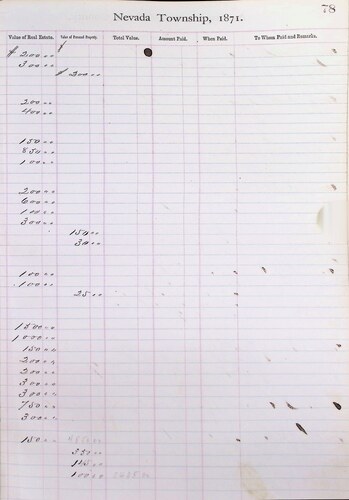 78
Nevada Township, 1871.
Value of Real Estate. Value of Personal Property. Total Value. Amount Paid. When Paid. To Whom Paid and Remarks.
$ 200 00 $
300 00
$ 200 00
200 00
400 00
150 00
850 00
100 00
200 00
600 00
100 00
300 00
150 00
30 00
100 00
100 00
25 00
1500 00
1000 00
150 00
200 00
200 00
300 00
300 00
750 00
300 00
150 00
550 00
100 00